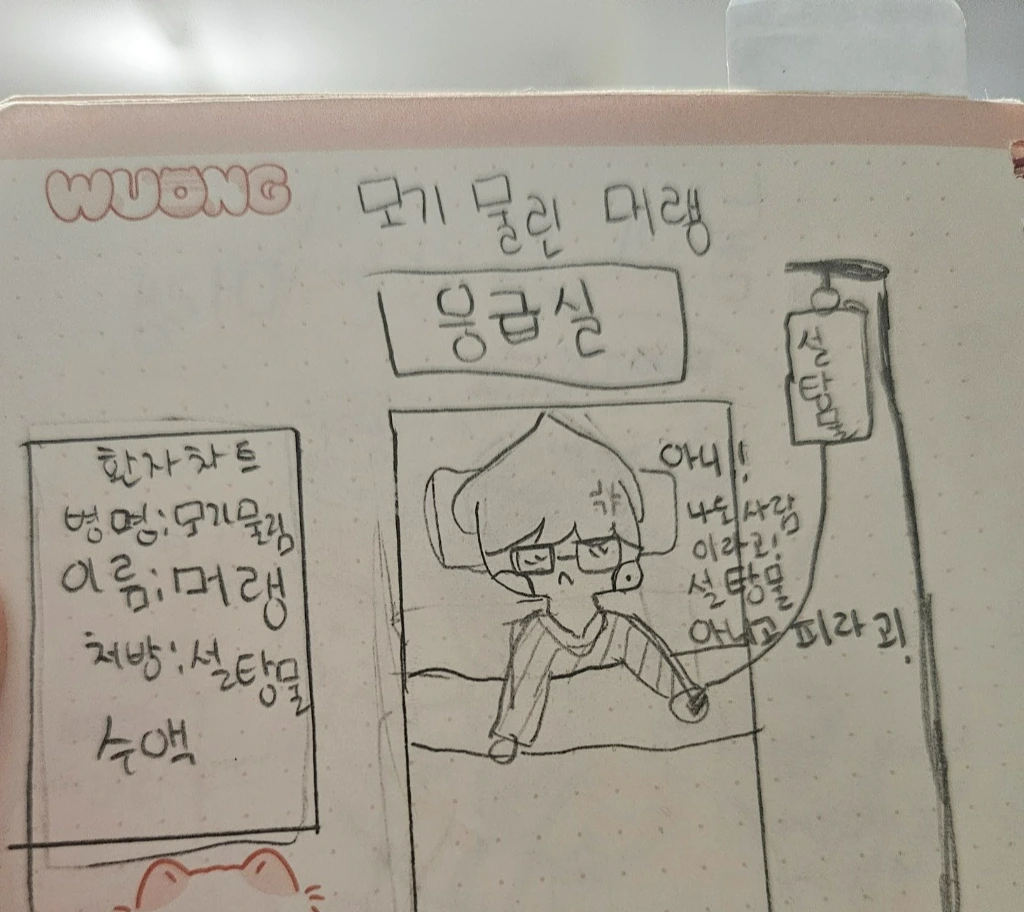 WUONG
모기 물린 머랭
응급실
설
탕
물
환자차트
병명:모기물림
이름:머랭
처방:설탕물
수액
아니!
나도 사람
이라고!
설탕물
아니고 피라고!